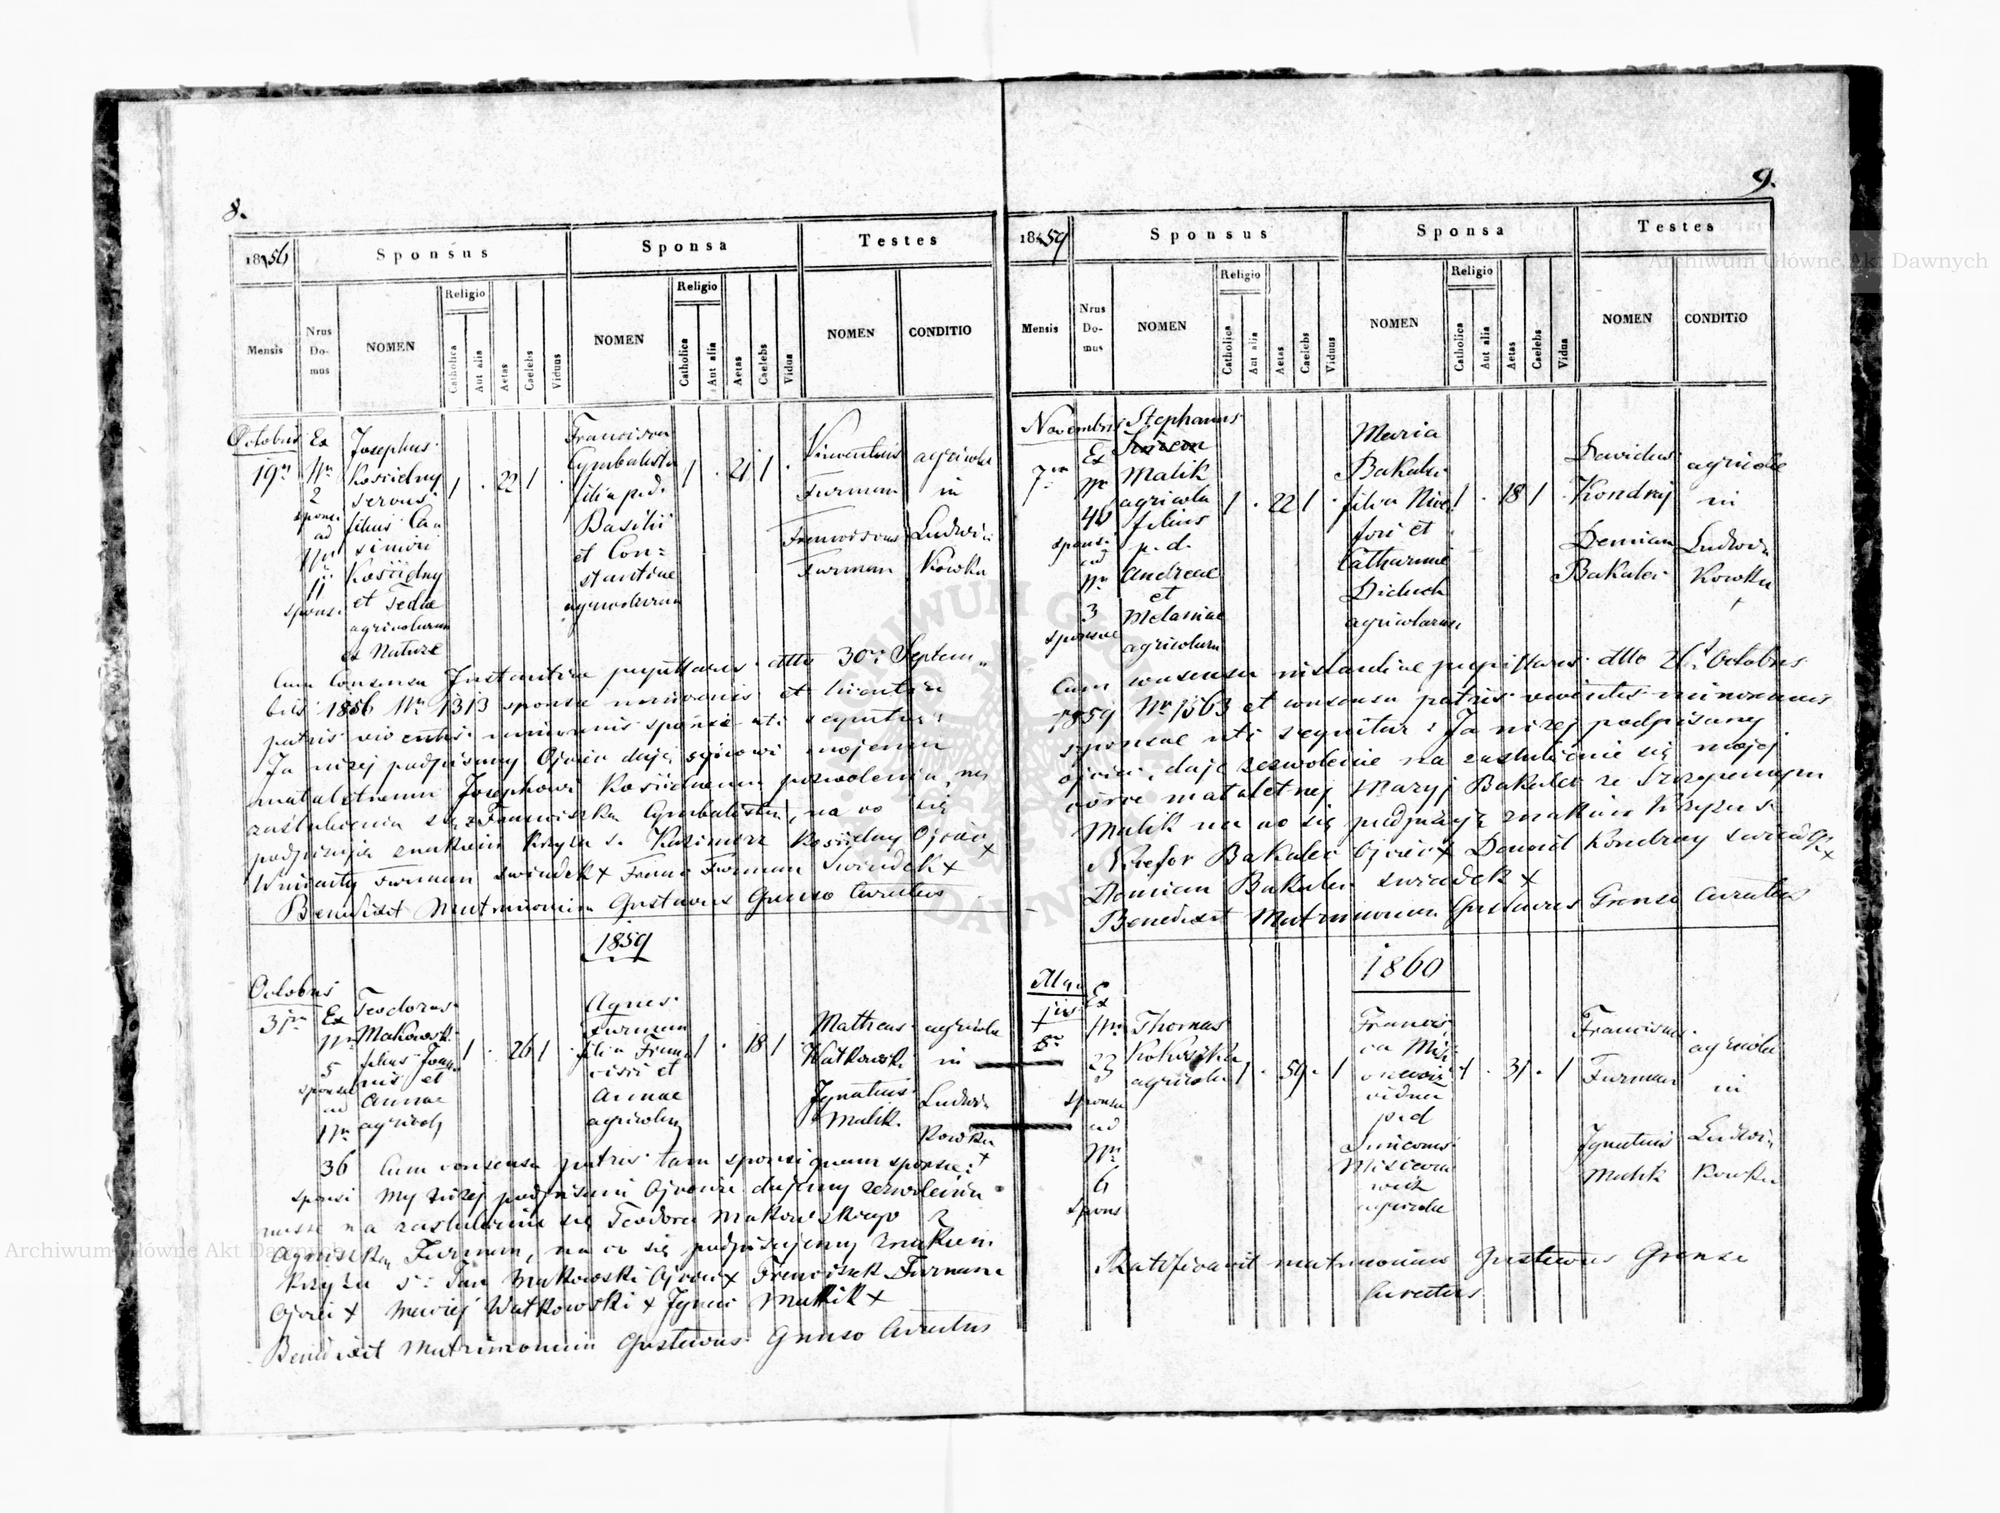 8.
1856
Sponsus
Sponsa
Testes
Mensis
Nrus Do- mus
NOMEN
Religio
Catholica
Aut alia
Aetas
Caelebs
Viduus
NOMEN
Religio
Catholica
Aut alia
Aetas
Caelebs
Vidua
NOMEN
CONDITIO
Octobris
19a
Ex
Nr
2
sponsi
ad
Nr
11
sponsi
Josephus
Kościelny
servus
filius Ca-
simiri
Kościelny
et Teclae
agricolarum
ex Nature
1 . 22 1
Francisca
Cymbalista
filia p.d.
Basilii
et Con=
stantiae
agricolarum
1 . 21 1 .
Vincentius
Furman
Franciscus
Furman
agricolae
in
Ludwi
kowka
Cum Consensu Instantiae pupillaris ddto 30 Septem
bris 1856 Nr 1313 sponsae minorennis et licentia
patris viventis minorennis sponsi uti sequitur:
Ja niżej podpisany Ojciec daję synowi mojemu
małoletniemu Josephowi Kościelnemu pozwolenia, na
zaślubienia się z Franciszką Cymbalistą, na co się
podpisuję znakiem krzyża s. Kazimierz Kościelny Ojciec x
Wincenty Furman świadek x Franc Furman Świadek x
Benedixit Matrimonium Gustavus Grenso Curatus
1859
Octobris
31
Ex
Nr
5
sponsae
ad
Nr
36
sponsi
Teodorus
Makowski
filius Joan
nis et
Annae
agricol
1 . 26 1
Agnes
Furman
filia Fran
cisci et
Annae
agricolar
1 . 18 1
Matheus
Watkowski
Ignatius
Malik
agricolae
in
Ludwi
kowka
Cum consensu patris tam sponsi quam sponsae:
My niżej podpisani Ojcowie dajemy zezwolenia
nasze na zaślubienie się Teodora Makowskiego z
Agnieszką Furman, na co się podpisujemy znakiem
krzyża s: Jan Makowski Ojciec x Franciszek Furman
Ojciec x Maciej Watkowski x Ignaci Malik x
Benedixit Matrimonium Gustavus Grenso Curatus
9.
1859
Sponsus
Sponsa
Testes
Mensis
Nrus Do- mus
NOMEN
Religio
Catholica
Aut alia
Aetas
Caelebs
Viduus
NOMEN
Religio
Catholica
Aut alia
Aetas
Caelebs
Vidua
NOMEN
CONDITIO
Novembris
7
Ex
Nr
46
sponsi
ad
Nr
3
sponsae
Stephanus
Malik
agricola
filius
p.d.
Andreae
et
Melaniae
agricolarum
1 . 22 1 .
Maria
Bakalec
filia Nice
fori et
Catharinae
Diduch
agricolarum
1 . 18 1 .
Davidus
Kondraj
Demian
Bakalec
agricolae
in
Ludwi
kowka
Cum consensu instantiae pupillaris ddto 26 Octobris
1859 Nr 1563 et consensu patris viventis minorennis
sponsae uti sequitur: Ja niżej podpisany
ojciec, daję zezwolenie na zaślubienie się mojej
córce małoletnej Maryj Bakalec ze Szczepanem
Malik na co się podpisuję znakiem krzyża s.
Nicefor Bakalec Ojciec x Dawid Kondray świadek x
Damian Bakalec świadek x
Benedixit Matrimonium Gustavus Grenso Curatus
1860
Ma
jus
8
Ex
Nr
23
sponsa
ad
Nr
6
spons
Thomas
Kokoszka
agricola
1 . 59 . 1
Francis
ca Mis
vidua
p.d.
agricola
1 . 31 . 1
Franciscus
Furman
Ignatius
Malik
agricolae
in
Ludwi
kowka
Ratificavit matrimonium Gustavus Grenso
Curatus
Archiwum Główne Akt Dawnych
Archiwum Główne Akt Dawnych
ARCHIWUM GŁÓWNE AKT DAWNYCH